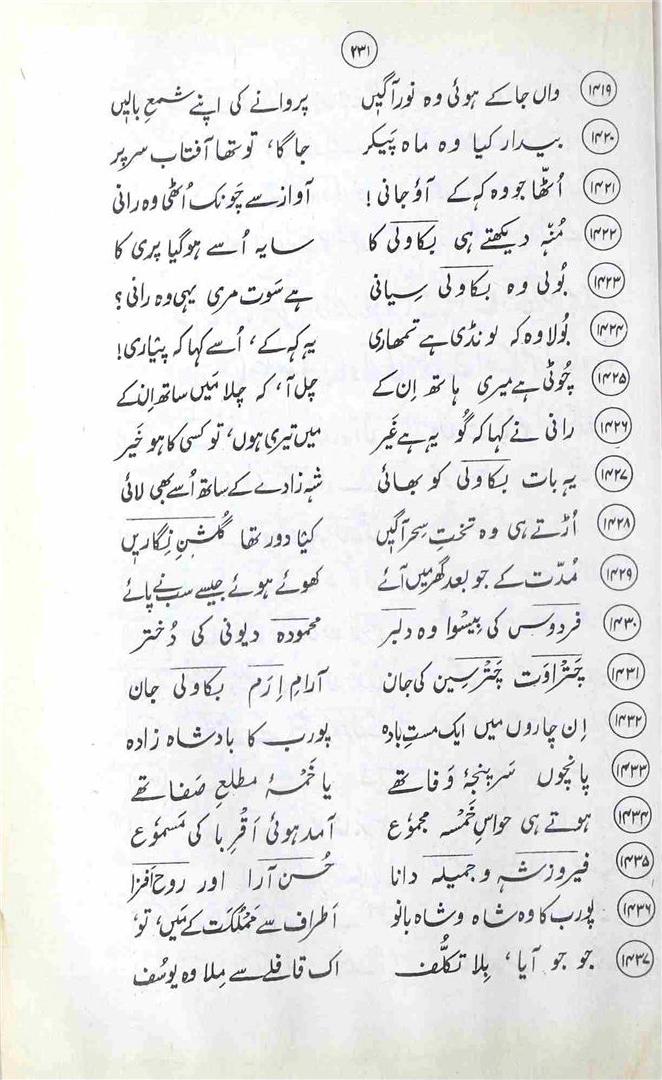 ۲۳۱
۱۴۱۹ واں جا کے ہوئی وہ نور آگیں پروانے کی اپنے شمعِ بالیں
۱۴۲۰ بیدار کیا وہ ماہ پَیکر جاگا، تو تھا آفتاب سر پر
۱۴۲۱ اُٹھا جو وہ کہ کے آؤ جانی! آواز سے چَونک اُٹھی وہ رانی
۱۴۲۲ مُنہ دیکھتے ہی بکاولی کا سایہ اُسے ہو گیا پری کا
۱۴۲۳ بُولی وہ بکاولی سیانی ہے سَوت مری یہی وہ رانی؟
۱۴۲۴ بُولا وہ کہ لونڈی ہے تمھاری یہ کہ کے، اُسے کہا کہ پیاری!
۱۴۲۵ چُوٹی ہے میری ہاتھ اِن کے چل آ، کہ چلا مَیں ساتھ اِن کے
۱۴۲۶ رانی نے کہا کہ گُو یہ ہے غَیر میں تیری ہوں، تو کسی کا ہو خَیر
۱۴۲۷ یہ بات بکاولی کو بھائی شہ زادے کے ساتھ اُسے بھی لائی
۱۴۲۸ اُڑتے ہی وہ تختِ سِحر آگیں کیا دور تھا گُلشنِ نِگاریں
۱۴۲۹ مُدّت کے جو بعد گھر میں آئے کھوئے ہوئے جیسے سب نے پائے
۱۴۳۰ فردوس کی بیسوا وہ دلبر محمودہ دیونی کی دُختر
۱۴۳۱ چتراوَت چترسین کی جان آرامِ اِرَم بکاولی جان
۱۴۳۲ اِن چاروں میں ایک مستِ بادہ پورب کا بادشاہ زادہ
۱۴۳۳ پانچوں سرپنجۂ وفا تھے یا خَمْسۂ مطلعِ صَفا تھے
۱۴۳۴ ہوتے ہی حواسِ خَمْسہ مجموُع آمد ہوئی اَقْرِبا کی مَسموُع
۱۴۳۵ فیروز شہ و جمیلہ دانا حُسن آرا اور روح افزا
۱۴۳۶ پورب کا وہ شاہ و شاہ بانو اَطراف سے مَمْلکَت کے مَیں، تو،
۱۴۳۷ جو جو آیا، بِلا تکلُّف اک قافلے سے مِلا وہ یوسُف